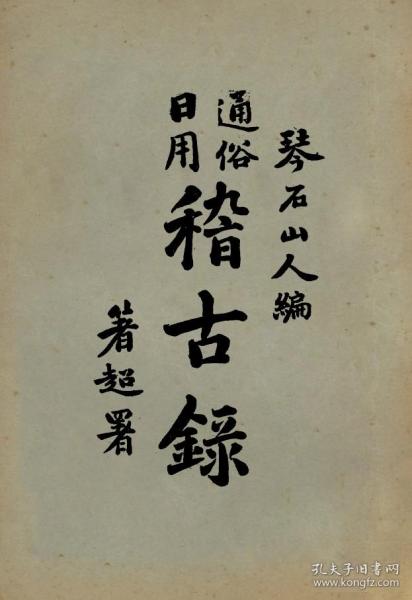 琴石山人編
通俗
日用
稽古錄
著超署
孔夫子旧书网
www.kongfz.com